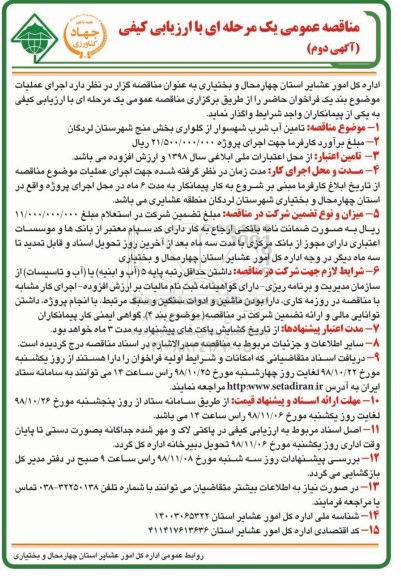 جهاد
کشاورزی
مناقصه عمومی یک مرحله ای با ارزیابی کیفی
(آگهی دوم)
اداره کل امور عشایر استان چهارمحال و بختیاری به عنوان مناقصه گزار در نظر دارد اجرای عملیات
موضوع بند یک فراخوان حاضر را از طریق برگزاری مناقصه عمومی یک مرحله ای با ارزیابی کیفی
به یکی از پیمانکاران واجد شرایط واگذار نماید.
۱- موضوع مناقصه: تامین آب شرب شهسوار از کلواری بخش منج شهرستان لردگان
۲- مبلغ برآورد کارفرما جهت اجرای پروژه ۲۱/۵۰۰/۰۰۰/۰۰۰ ریال
۳- تامین اعتبار: از محل اعتبارات ملی ابلاغی سال ۱۳۹۸ و ارزش افزوده می باشد.
۴- مدت و محل اجرای کار: مدت زمان در نظر گرفته شده جهت اجرای عملیات موضوع مناقصه
از تاریخ ابلاغ کارفرما مبنی بر شروع به کار پیمانکار به مدت ۶ ماه در محل اجرای پروژه واقع در
استان چهارمحال و بختیاری شهرستان لردگان منطقه عشایری می باشد.
۵- میزان و نوع تضمین شرکت در مناقصه: مبلغ تضمین شرکت در استعلام مبلغ ۱۱/۰۰۰/۰۰۰/۰۰۰
ریال به صورت ضمانت نامه بانکی ارجاع به کار دارای کد سپام معتبر از بانک ها و موسسات
اعتباری دارای مجوز از بانک مرکزی با مدت سه ماه بعد از آخرین روز تحویل اسناد و قابل تمدید تا
سه ماه دیگر در وجه اداره کل امور عشایر استان چهارمحال و بختیاری
۶- شرایط لازم جهت شرکت در مناقصه: داشتن حداقل رتبه پایه ۵ (آب و ابنیه) یا (آب و تاسیسات) از
سازمان مدیریت و برنامه ریزی - دارای گواهینامه ثبت نام مالیات بر ارزش افزوده- اجرای کار مشابه
با مناقصه در روزمه کاری، دارا بودن ماشین و ادوات سنگین و سبک مرتبط، با انجام پروژه، داشتن
توانایی مالی و ارائه تضمین شرکت در مناقصه (موضوع بند ۴)، گواهی ایمنی کار پیمانکاران
۷- مدت اعتبار پیشنهادها: از تاریخ گشایش پاکت های پیشنهاد به مدت ۳ ماه خواهد بود.
۸- سایر اطلاعات و جزئیات مربوط به مناقصه صدرالاشاره در اسناد مناقصه درج گردیده است.
۹- دریافت اسناد متقاضیانی که امکانات و شرایط اولیه فراخوان را دارا هستند از روز یکشنبه
مورخ ۹۸/۱۰/۲۲ لغایت روز چهارشنبه مورخ ۹۸/۱۰/۲۵ راس ساعت ۱۴ می توانند به سامانه ستاد
ایران به آدرس http:www.setadiran.ir مراجعه نمایند.
۱۰- مهلت ارائه اسناد و پیشنهاد قیمت: از طریق سامانه ستاد از روز پنجشنبه مورخ ۹۸/۱۰/۲۶
لغایت روز یکشنبه مورخ ۹۸/۱۱/۰۶ راس ساعت ۱۴ می باشد.
۱۱- اصل اسناد مربوط به ارزیابی کیفی در پاکتی لاک و مهر شده جداگانه بصورت دستی تا پایان
وقت اداری روز یکشنبه مورخ ۹۸/۱۱/۰۶ تحویل دبیرخانه اداره کل گردد.
۱۲- بررسی پیشنهادات روز سه شنبه مورخ ۹۸/۱۱/۰۸ راس ساعت ۹ صبح در دفتر مدیر کل
بازگشایی می گردد.
۱۳- در صورت نیاز به اطلاعات بیشتر متقاضیان می توانند با شماره تلفن ۳۲۲۵۰۱۳۸-۰۳۸ تماس
یا مراجعه فرمایند.
۱۴- شناسه ملی اداره کل امور عشایر استان ۱۴۰۰۳۰۶۵۳۲۲
۱۵- کد اقتصادی اداره کل امور عشایر استان ۴۱۱۴۱۷۶۱۳۶۳۶
روابط عمومی اداره کل امور عشایر استان چهارمحال و بختیاری